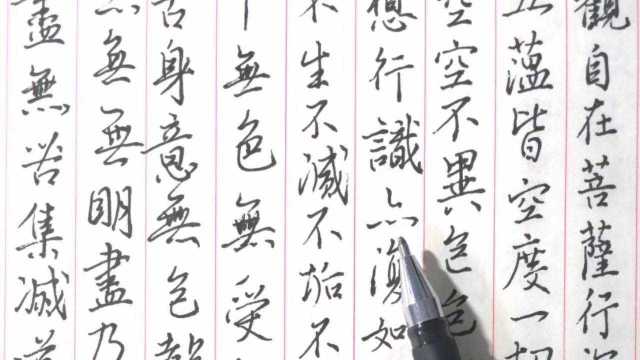 觀自在菩薩行深
五蘊皆空度一切
空空不異色色
想行識亦復如
不生不滅不垢不
中無色無受
舌身意無色聲
亦無無明盡乃
盡無苦集滅道